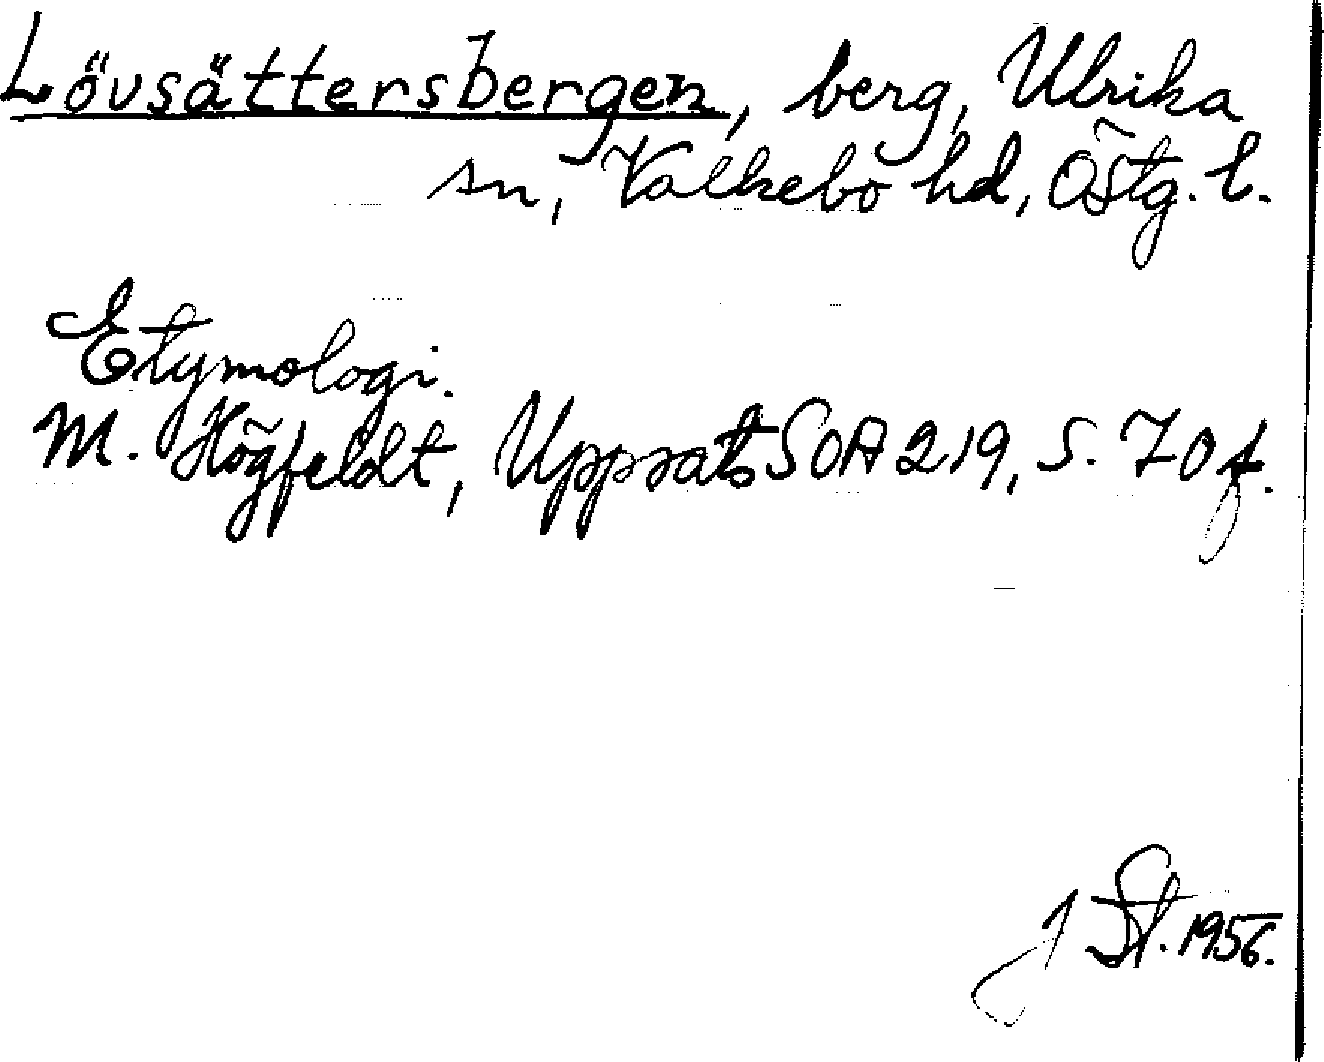 Lövsättersbergen, berg, Ulrika
sn, Valkebo hd, Östg. l.
Etymologi.
M. Högfeldt, Uppsats SOA 219, s. 70 f.
J St. 1956.